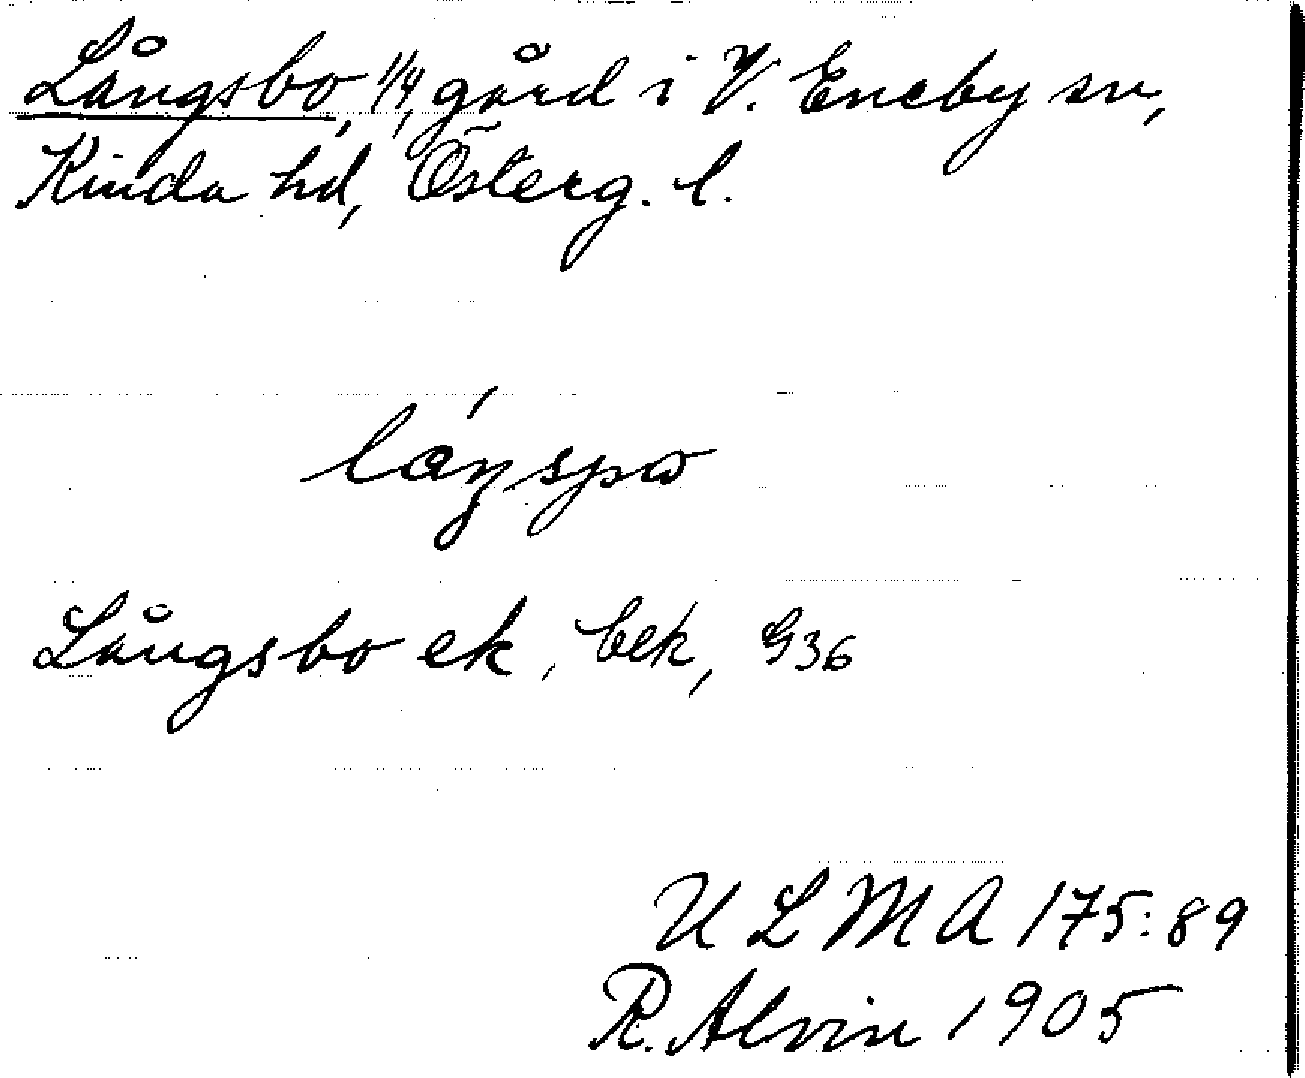 Långsbo, 1/4, gård i V. Eneby sn,
Kinda hd, Österg. l.
Långsbo ek, bek, G36
ULMA 175:89
R. Alvin 1905